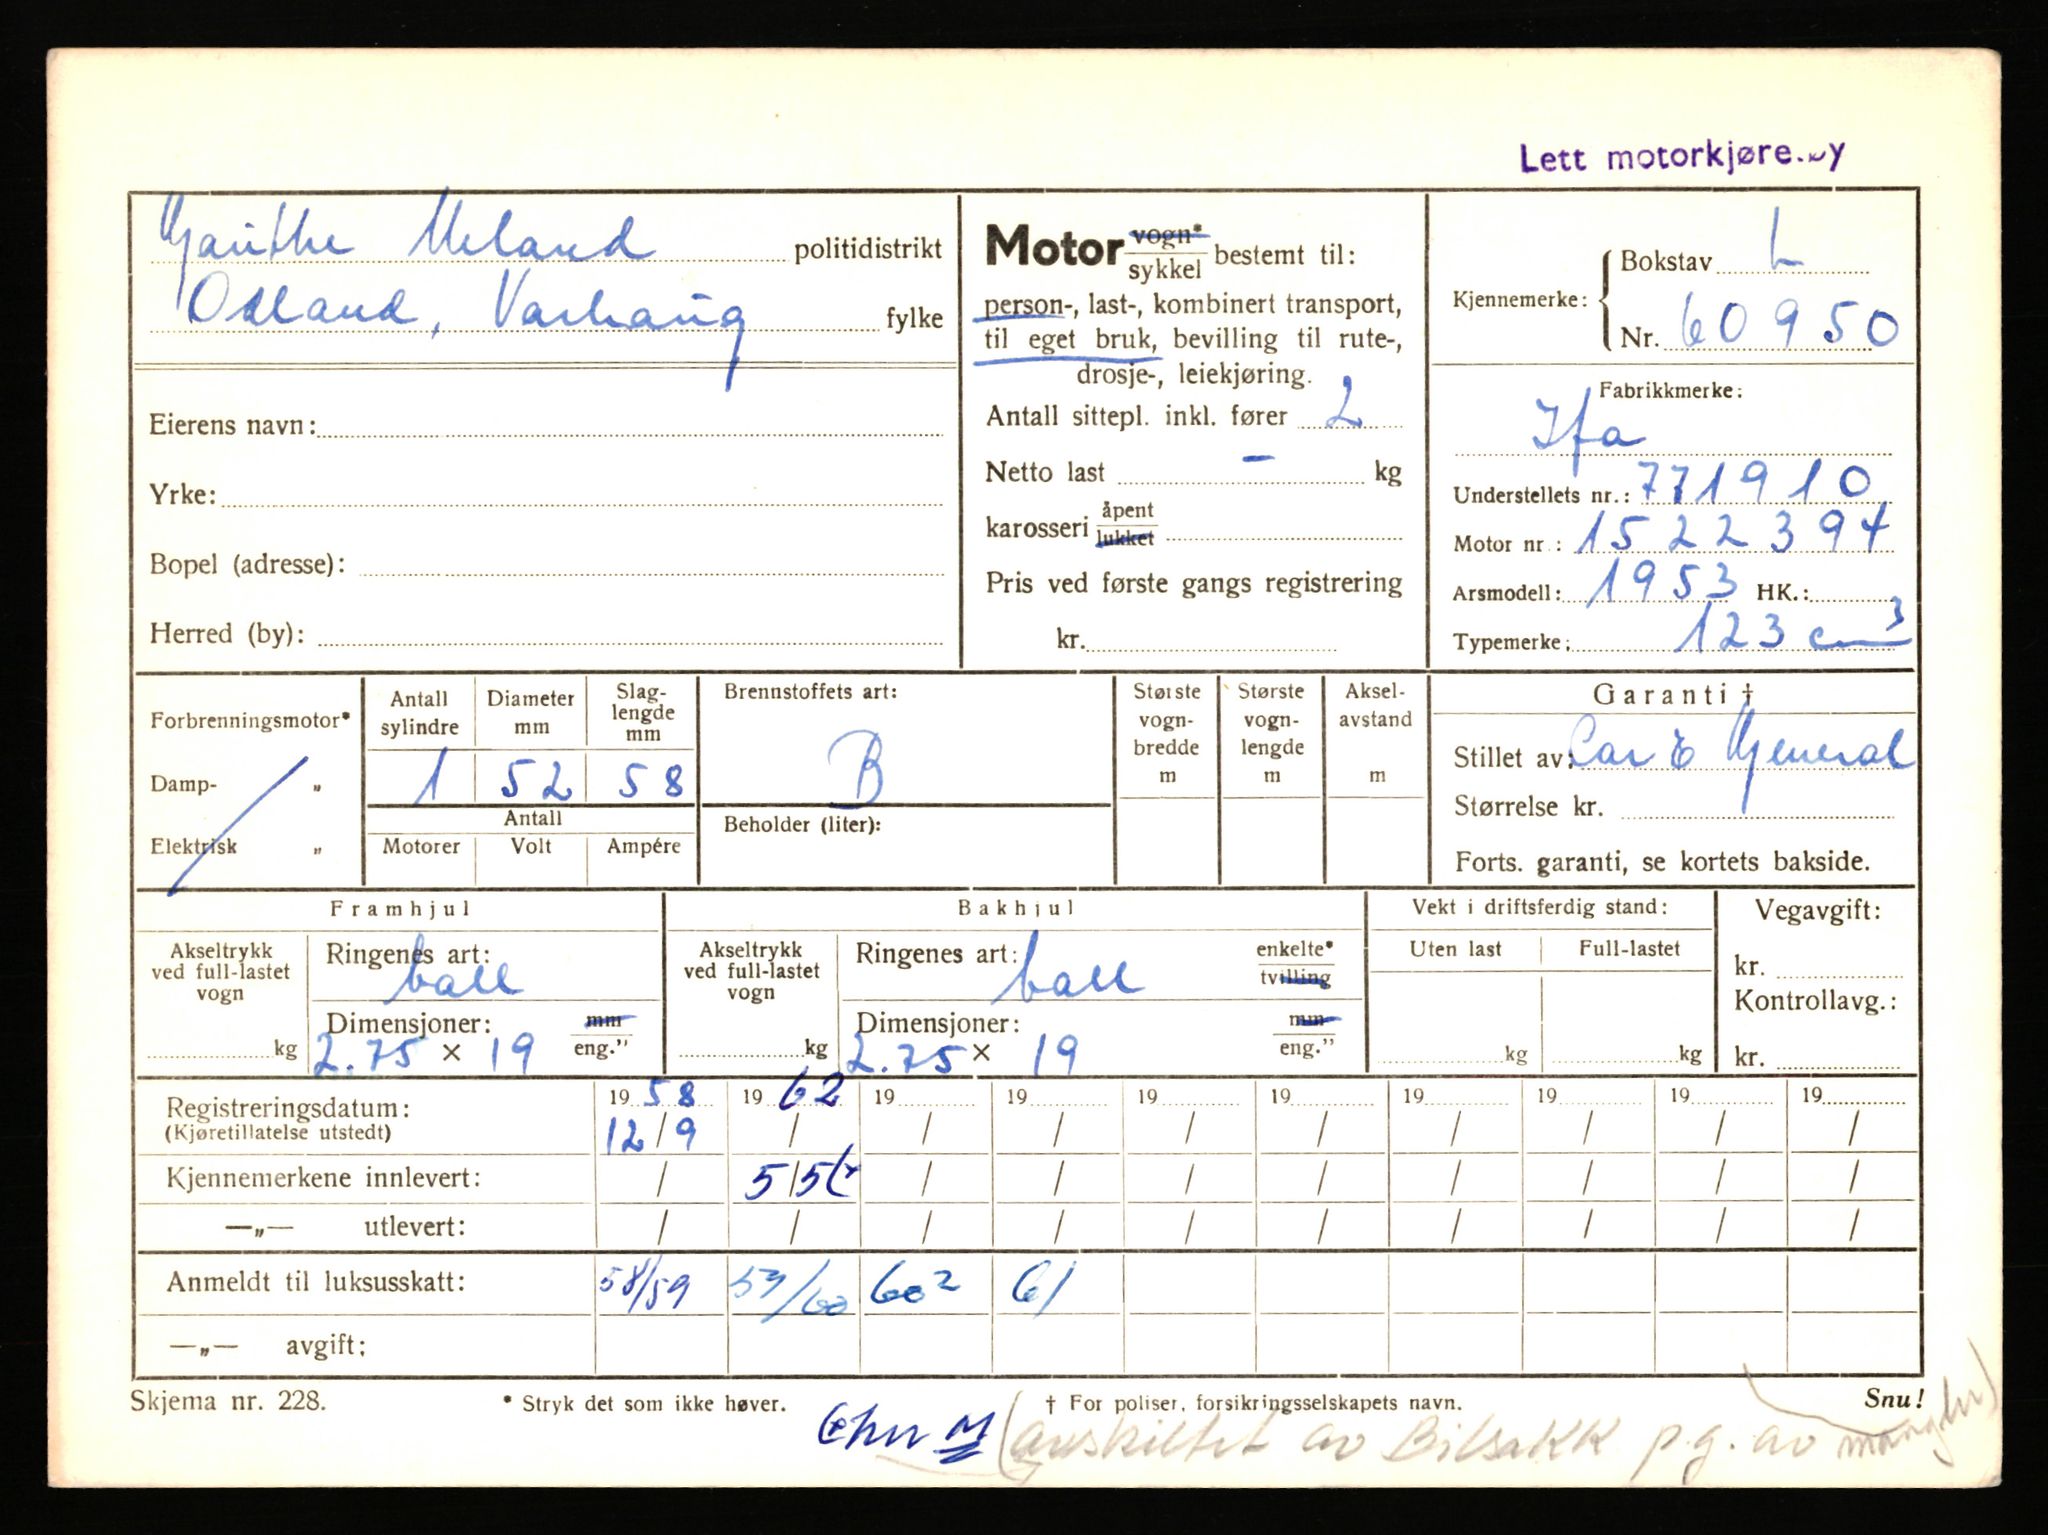 Lett motorkjøretøy
Meland politidistrikt
Odland, Varhaug fylke
Eierens navn:
Yrke:
Bopel (adresse):
Herred (by):
Motor vogn* sykkel bestemt til:
person-, last-, kombinert transport,
til eget bruk, bevilling til rute-,
drosje-, leiekjøring.
Antall sittepl. inkl. fører 2
Netto last - kg
karosseri åpent lukket
Pris ved første gangs registrering
kr.
Kjennemerke: Bokstav L
Nr. 60950
Fabrikkmerke:
Ifa
Understellets nr.: 771910
Motor nr.: 1522394
Arsmodell: 1953 HK.:
Typemerke: 123 cm³
Forbrenningsmotor*
Damp- „
Elektrisk „
Antall sylindre Diameter mm Slag-lengde mm
1 52 58
Antall
Motorer Volt Ampére
Brennstoffets art:
B
Beholder (liter):
Største vogn-bredde m
Største vogn-lengde m
Aksel-avstand m
Garanti †
Stillet av: Car & General
Størrelse kr.
Forts. garanti, se kortets bakside.
Framhjul
Akseltrykk ved full-lastet vogn kg
Ringenes art: ball
Dimensjoner: mm eng."
2.75 × 19
Bakhjul
Akseltrykk ved full-lastet vogn kg
Ringenes art: ball enkelte* tvilling
Dimensjoner: mm eng."
2.75 × 19
Vekt i driftsferdig stand:
Uten last Full-lastet
kg kg
Vegavgift:
kr.
Kontrollavg.:
kr.
Registreringsdatum: 19 58 19 62 19 19 19 19 19 19 19 19
(Kjøretillatelse utstedt) 12/9 / / / / / / / / /
Kjennemerkene innlevert: / 5/5 / / / / / / / /
—„— utlevert: / / / / / / / / / /
Anmeldt til luksusskatt: 58/59 59/60 60² 61
—„— avgift:
Skjema nr. 228. * Stryk det som ikke høver. † For poliser, forsikringsselskapets navn. Snu!
(avskiltet av Bilsakk p.g. av mangler)